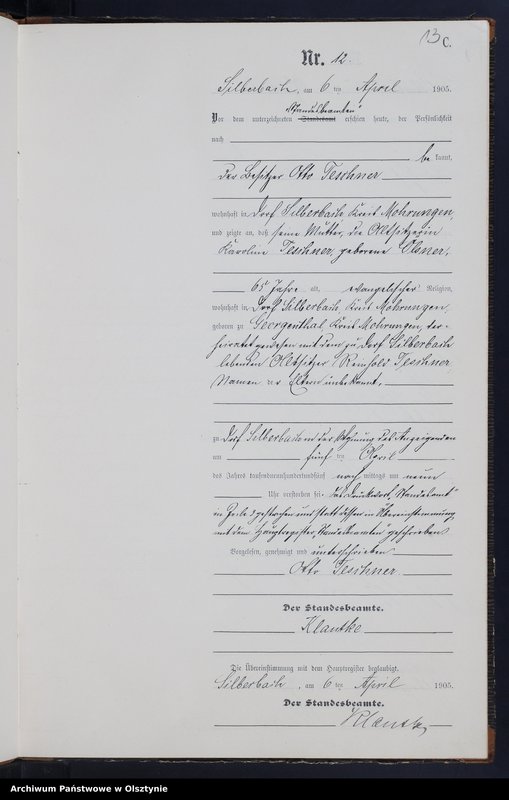 13
C.
Nr. 12.
Silberbach, am 6 ten April 1905.
Standesbeamten"
Von dem unterzeichneten Standesamt erschien heute, der Persönlichkeit
nach
be kannt,
der Besitzer Otto Teschner
wohnhaft in Dorf Silberbach Kreis Mohrungen,
und zeigte an, daß seine Mutter, die Altsitzerin
Karoline Teschner, geborene Elsner,
65 Jahre alt, evangelischer Religion,
wohnhaft in Dorf Silberbach, Kreis Mohrungen,
geboren zu Georgenthal Kreis Mohrungen, ver-
heiratet gewesen mit dem zu Dorf Silberbach
lebenden Altsitzer Reinhold Teschner,
Namen der Eltern unbekannt,
zu Dorf Silberbach in der Wohnung des Anzeigenden
am fünf ten April
des Jahres tausendneunhundertundfünf nach mittags um neun
Uhr verstorben sei. das Druckwort „Standesamt"
in Zeile 1 gestrichen und statt dessen in Übereinstimmung
mit dem Hauptregister „Standesbeamten" geschrieben
Vorgelesen, genehmigt und unterschrieben
Otto Teschner
Der Standesbeamte.
Klautke
Die Übereinstimmung mit dem Hauptregister beglaubigt.
Silberbach, am 6 ten April 1905.
Der Standesbeamte.
Klautke
Archiwum Państwowe w Olsztynie